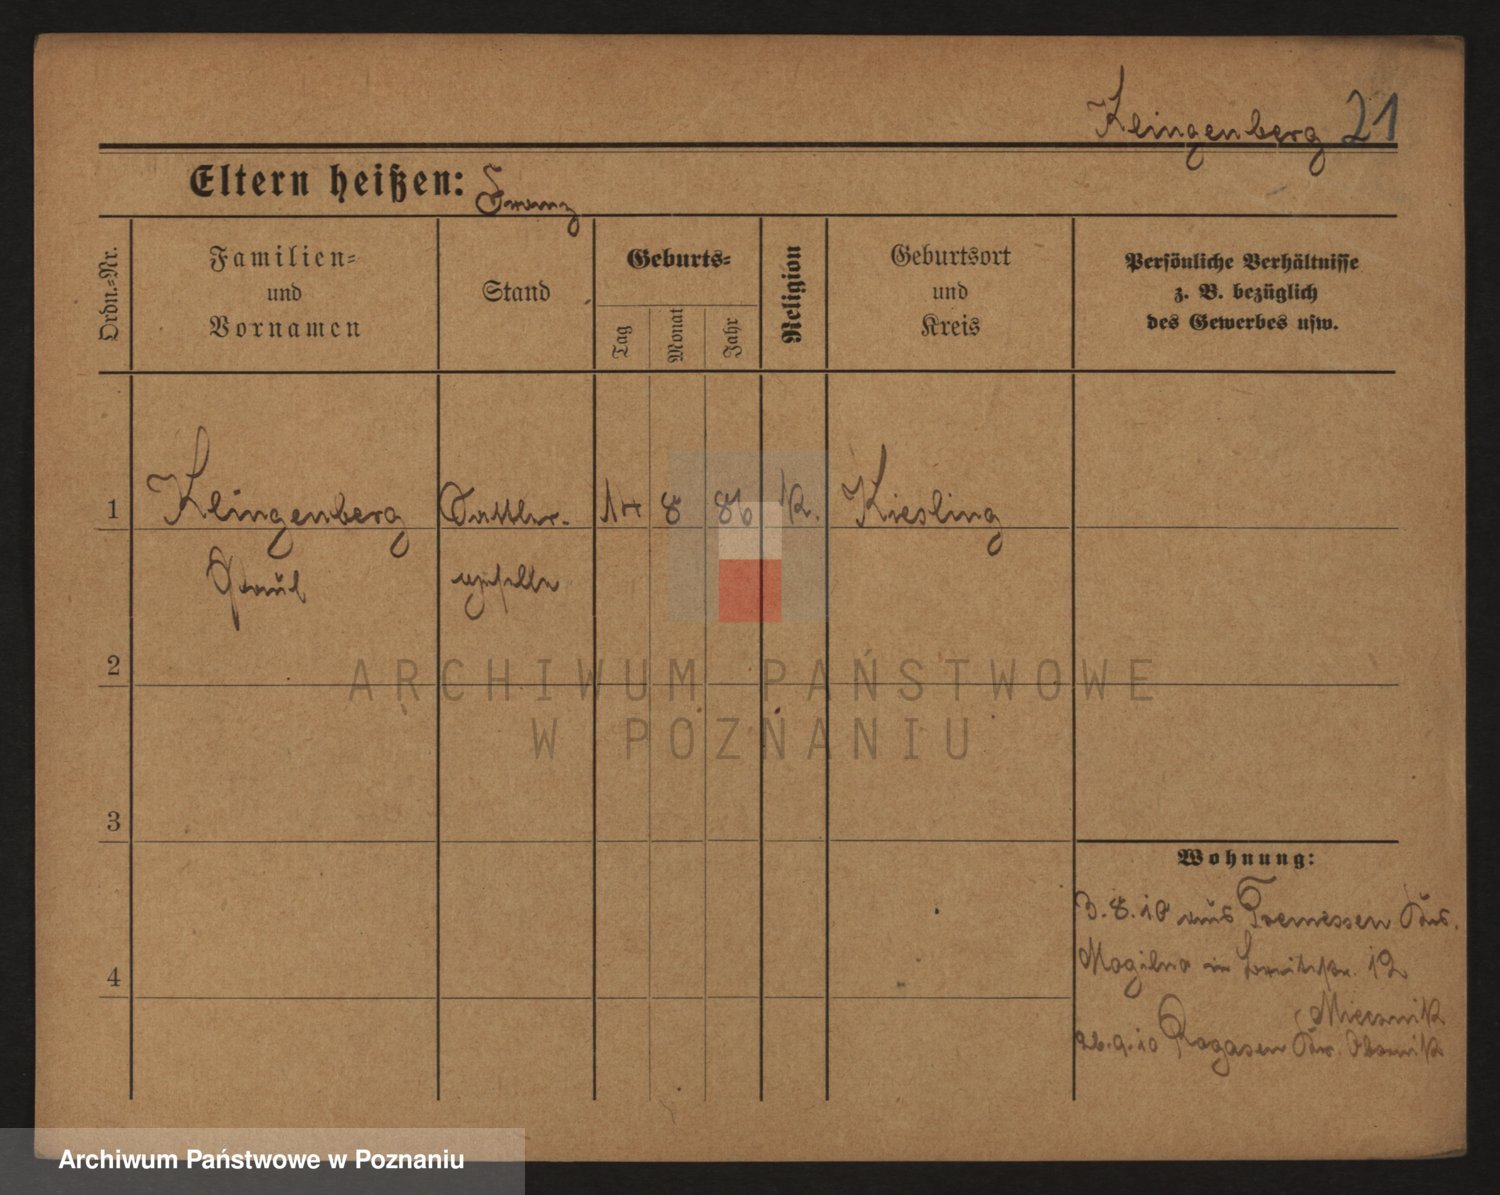 Klingenberg 21
Eltern heißen: Franz
Ordn.=Nr.
Familien=
und
Vornamen
Stand
Geburts=
Tag
Monat
Jahr
Religion
Geburtsort
und
Kreis
Persönliche Verhältnisse
z. B. bezüglich
des Gewerbes usw.
1 Klingenberg Sattler- 14 8 86 K. Kiesling
Paul geselle
2
ARCHIWUM PAŃSTWOWE
W POZNANIU
3
Wohnung:
3.8.10 aus Tremessen Krs.
4
Mogilno in 12
Miecznik
26.9.10 Rogasen Kr. Obornik
Archiwum Państwowe w Poznaniu